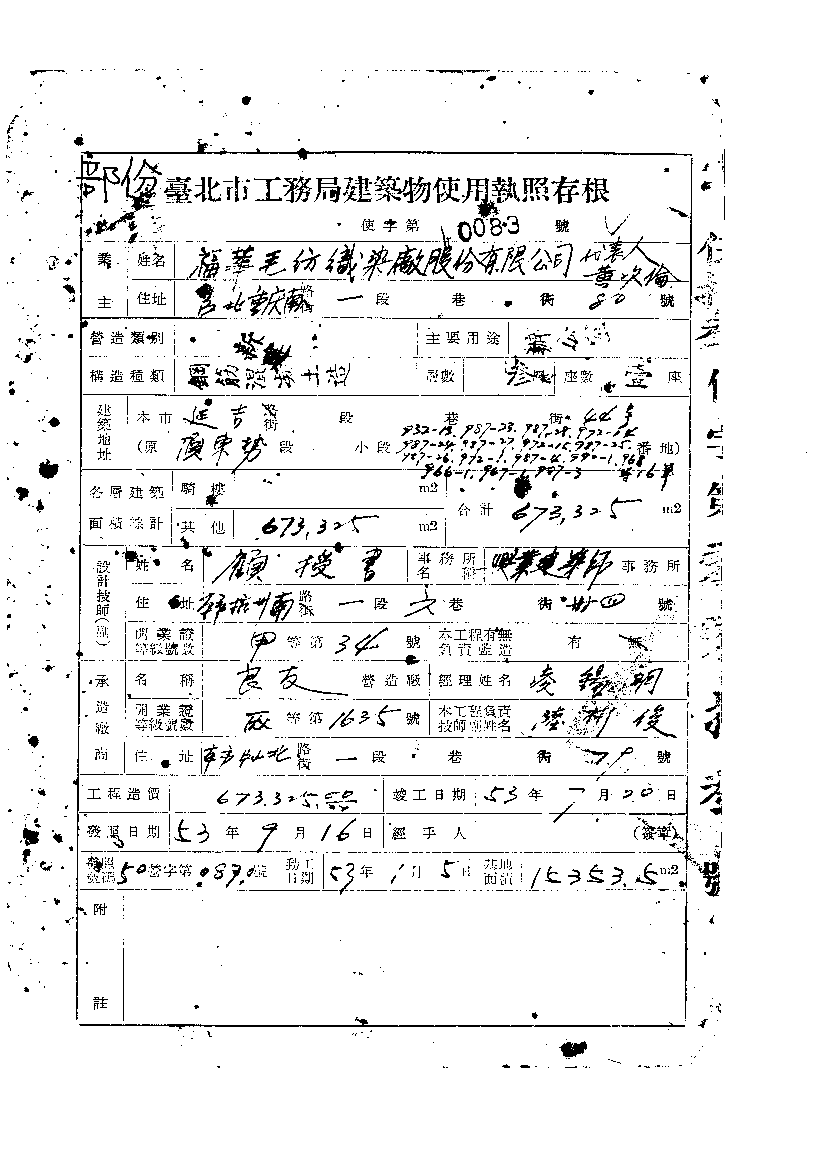 部份
臺北市工務局建築物使用執照存根
使字第 0083 號
業主 姓名 福華毛紡織染廠股份有限公司 代表人 黃次倫
住址 台北重慶南路 一段 巷 街 80 號
營造類別 新 主要用途
構造種類 鋼筋混凝土造 層數 叁層 座數 壹座
建築地址 本市 延吉 路街 段 巷 街 44 號
932-18, 987-23, 987-28, 972-14
(原 廣東勢 段 小段 987-24, 987-27, 972-15, 987-25, 番地)
987-26, 972-1, 987-4, 990-1, 968
966-1, 967-1, 987-3 等16筆
各層建築面積綜計 騎樓 m2
其他 673,325 m2 合計 673,325 m2
設計技師(副) 姓名 顧授書 事務所名稱 興業建築師 事務所
住址 本市杭州南路街 一段 六巷 街 廿四 號
開業證等級號數 甲等第 34 號 本工程有無負責監造 有 無
承造廠商 名稱 良友 營造廠 經理姓名 凌錫明
開業證等級號數 等第 1635 號 本工程負責技師副姓名 陸彬俊
住址 本市中山北路街 一段 巷 街 79 號
工程造價 673,325.00 竣工日期 53 年 7 月 20 日
發照日期 53 年 9 月 16 日 經手人 (簽章)
執照號碼 50 營字第 0830 號 動工日期 53 年 1 月 5 日 基地面積 15353.5 m2
附註